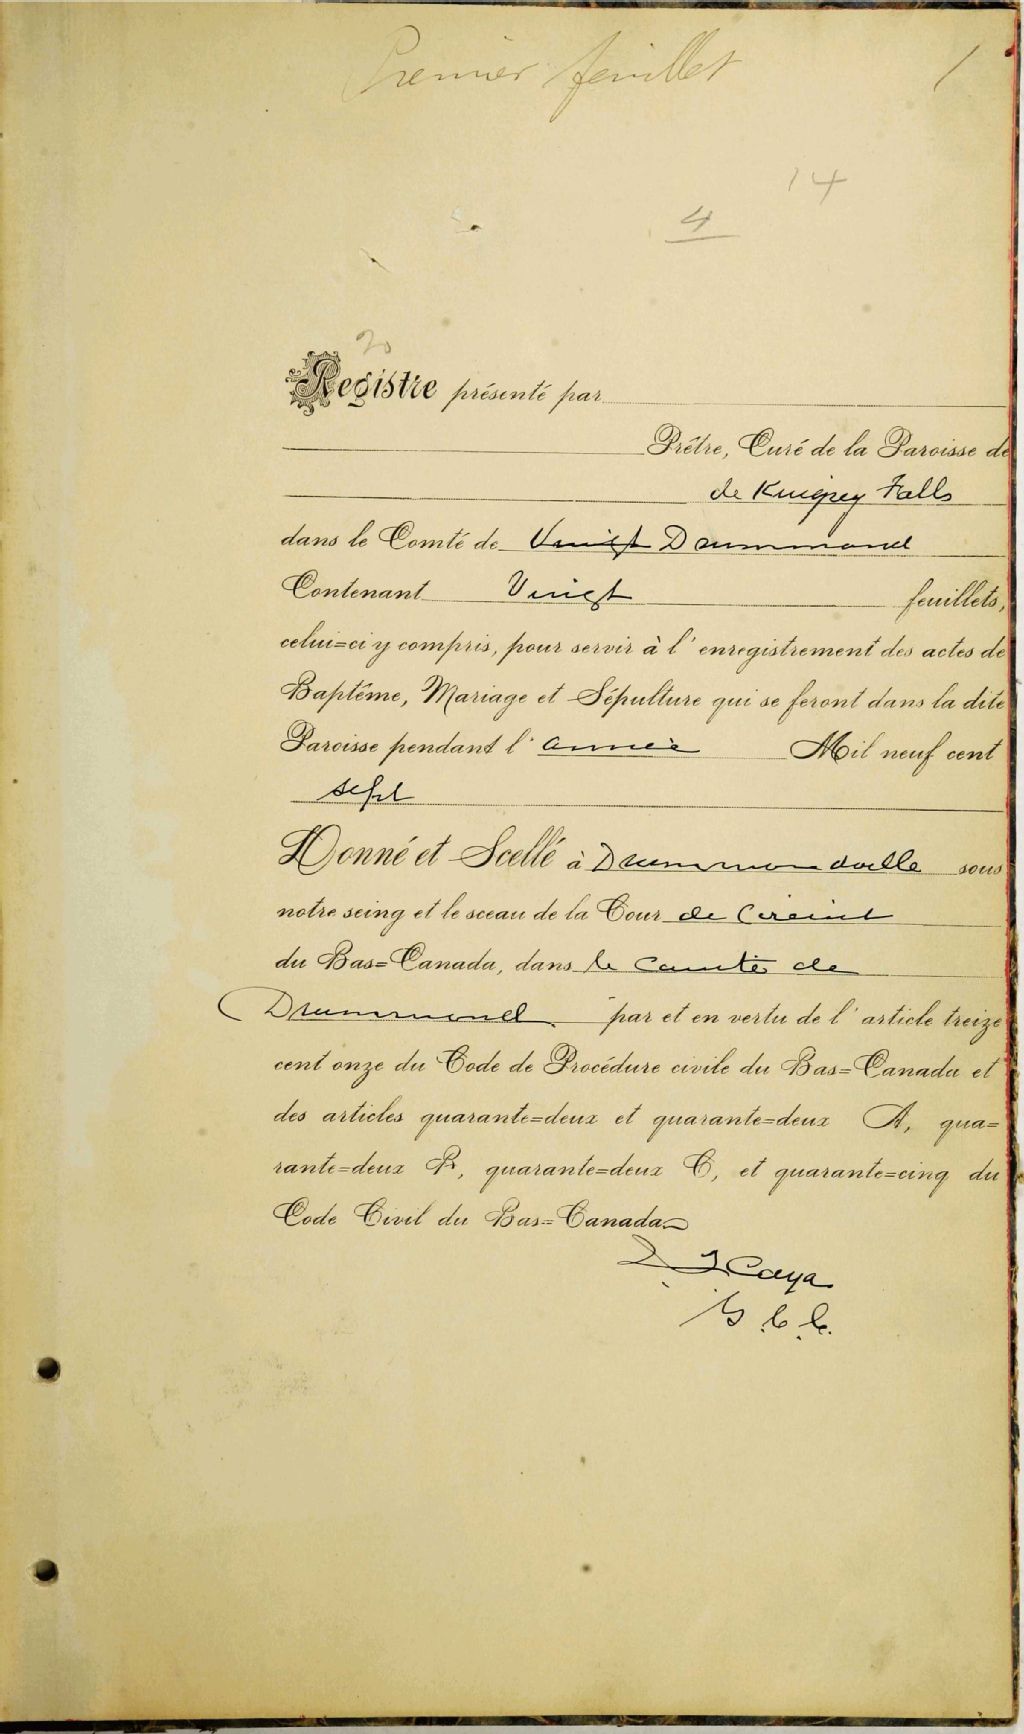 Premier feuillet 1
14
4
20
Registre présenté par
Prêtre, Curé de la Paroisse de
de Kingsey Falls
dans le Comté de Vingt Drummond
Contenant Vingt feuillets,
celui=ci y compris, pour servir à l'enregistrement des actes de
Baptême, Mariage et Sépulture qui se feront dans la dite
Paroisse pendant l'année Mil neuf cent
sept
Donné et Scellé à Drummondville sous
notre seing et le sceau de la Cour de Circuit
du Bas=Canada, dans le Comté de
Drummond. par et en vertu de l'article treize
cent onze du Code de Procédure civile du Bas=Canada et
des articles quarante=deux et quarante=deux A, qua=
rante=deux B, quarante=deux C, et quarante=cinq du
Code Civil du Bas=Canada
J Caya
G. C. C.